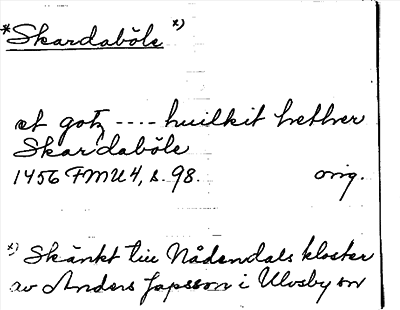 *Skardaböle x)
et gotz ---- huilkit hether
Skardaböle
1456 FMU 4, s. 98. orig.
x) Skänkt till Nådendals kloster
av Anders Jopsson i Ulvsby sn